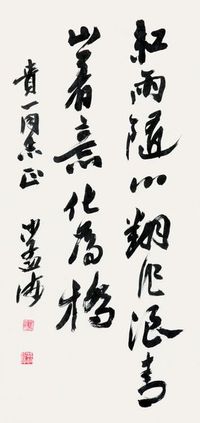 紅雨隨心翻作浪青
山着意化為橋
一同志正
沙孟海